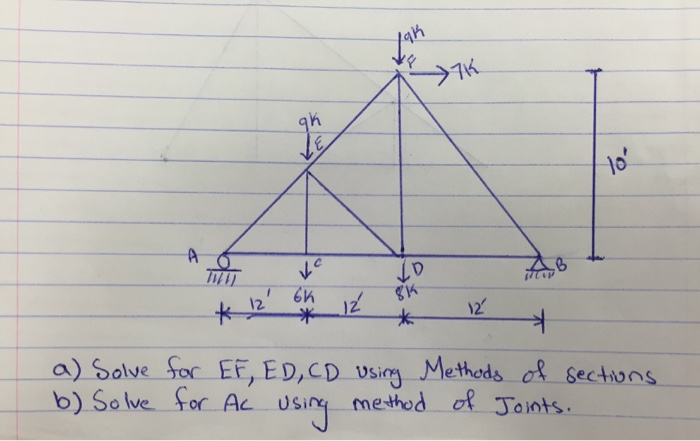 9K
F
7K
9K
E
10'
A
C
D
B
6K
8K
12'
12'
12'
a) Solve for EF, ED, CD using Methods of sections
b) Solve for AC using method of Joints.